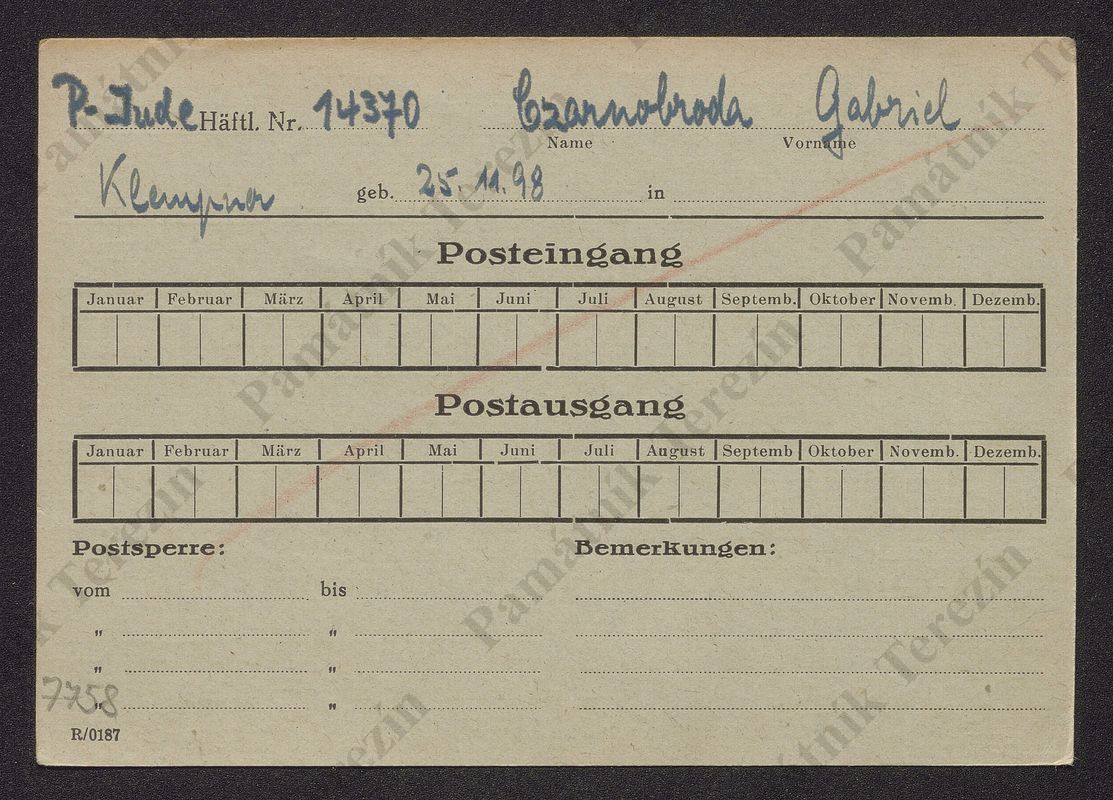 P.-Jude Häftl. Nr. 14370 Czarnobroda Gabriel
Name Vorname
Klempner geb. 25. 11. 98 in
Posteingang
Januar Februar März April Mai Juni Juli August Septemb. Oktober Novemb. Dezemb.
Postausgang
Januar Februar März April Mai Juni Juli August Septemb Oktober Novemb. Dezemb.
Postsperre: Bemerkungen:
vom bis
" "
" "
7758 " "
R/0187
Památník Terezín